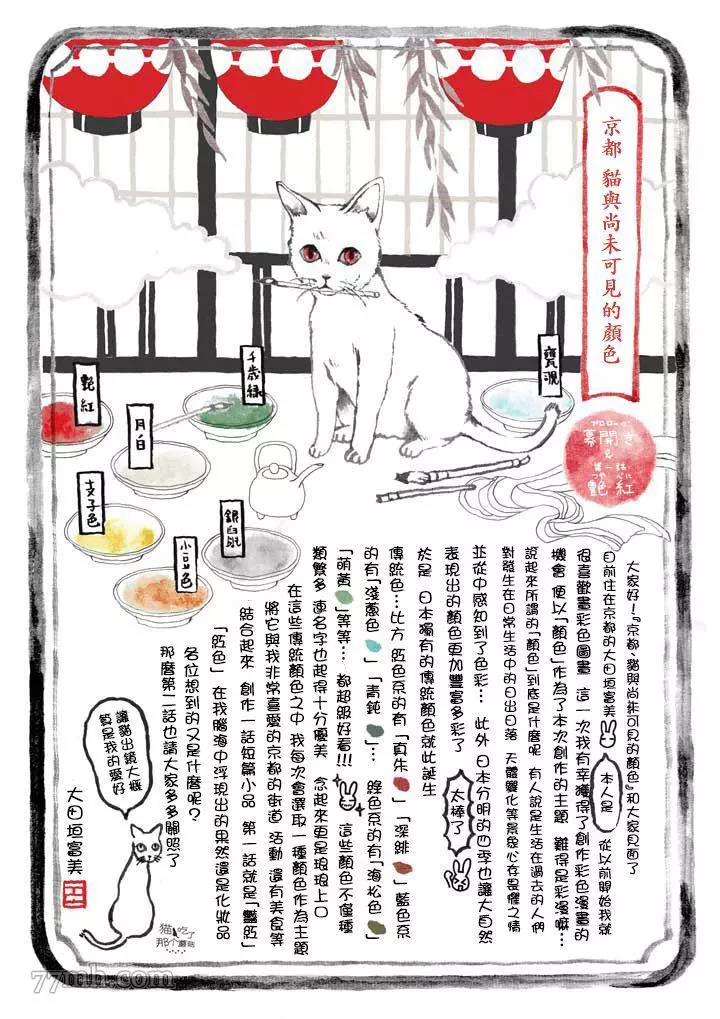 京都 貓與尚未可見的顏色
幕開き
第一話
艶紅
甕覗
千歲綠
艷紅
月白
支子色
銀鼠
小豆色
大家好!『京都、貓與尚未可見的顏色』和大家見面了
目前住在京都的大田垣富美
本人是
從以前開始我就
很喜歡畫彩色圖畫 這一次我有幸獲得了創作彩色漫畫的
機會 便以「顏色」作為了本次創作的主題 難得是彩漫嘛…
說起來所謂的「顏色」到底是什麼呢 有人說是生活在過去的人們
對發生在日常生活中的日出日落 天體變化等景象心存畏懼之情
並從中感知到了色彩… 此外 日本分明的四季也讓大自然
表現出的顏色更加豐富多彩了
太棒了
於是 日本獨有的傳統顏色就此誕生
傳統色…比方 紅色系的有「真朱」「深緋」藍色系
的有「淺蔥色」「青鈍」… 綠色系的有「海松色」
「萌黃」等等… 都超級好看!!! 這些顏色不僅種
類繁多 連名字也起得十分優美 念起來更是琅琅上口
在這些傳統顏色之中 我每次會選取一種顏色作為主題
將它與我非常喜愛的京都的街道 活動 還有美食等
結合起來 創作一話短篇小品 第一話就是「艷紅」
「紅色」 在我腦海中浮現出的果然還是化妝品
各位想到的又是什麼呢?
那麼第二話也請大家多多關照了
大田垣富美
讓貓出鏡大概
算是我的愛好
貓吃了
那个蘑菇
77mh.com